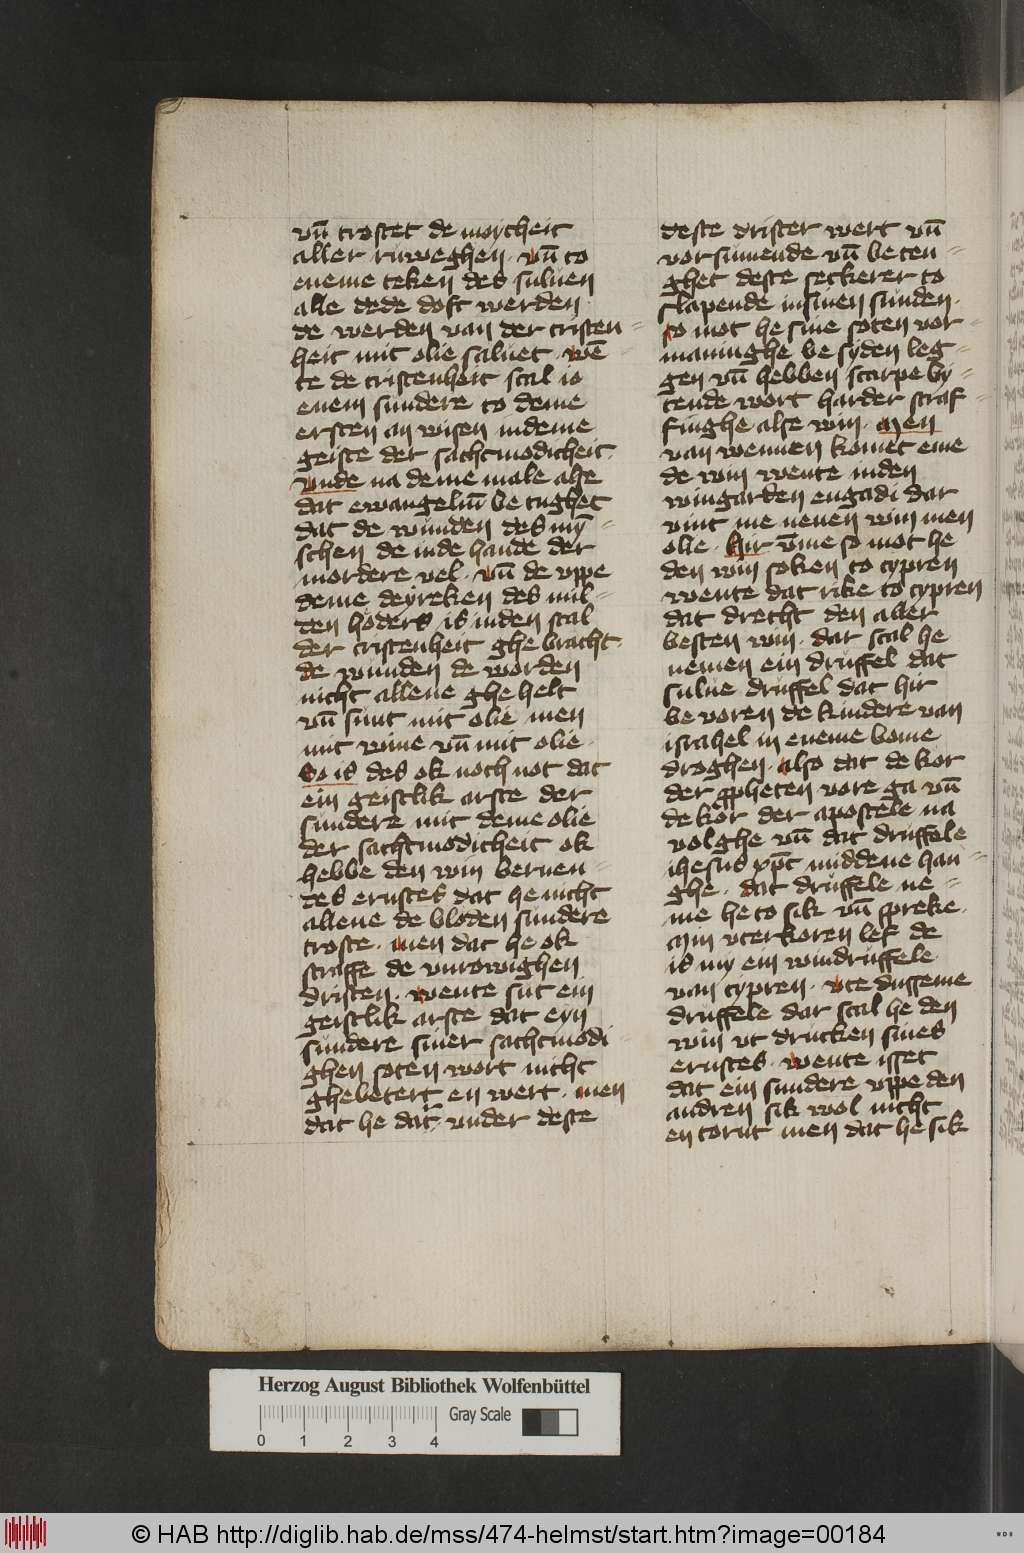 vn̄ trostet de moycheit
aller ruweghen · vn̄ to
eneme teken des suluen
alle dede doft werden
de werden van der cristen=
heit mit olie saluet · wē=
te de cristenheit scal io
enem sundere to deme
ersten an wisen indeme
geiste der sachtmodicheit ·
vnde na deme male alse
dat ewangeliū be tughet
dat de wunden des mȳ=
schen de inde hande der
mordere vel · vn̄ de vppe
deme deyreken des mil=
den hoders is inden stal
der cristenheit ghe bracht ·
de wunden de worden
nicht allene ghe helt
vn̄ sunt mit olie men
mit wine vn̄ mit olie ·
So is des ok noch not dat
ein geistlik arste der
sundere mit deme olie
der sachtmodicheit ok
hebbe den win bernen=
des ernstes dat he nicht
allene de bloden sundere
troste · men dat he ok
straffe de vnrowighen
dristen · wente sut ein
geistlik arste dat eyn
sundere siner sachtmodi=
ghen soten wort nicht
ghebetert en wert · men
dat he dar vnder deste
deste drister wert vn̄
vorsumende vn̄ be ten=
ghet deste seckerer to
slapende insinen sunden ·
so mot he sine soten vor=
maninghe be syden leg=
gen vn̄ hebben scarpe by=
tende wort harder straf=
finghe alse win · Men
van wennen komet eme
de win wente inden
wingarden engadi dar
vint me nenen win men
olie · Hir v̄me so mot he
den win soken to cypren
wente dat rike to cypren
dat drecht den aller
besten win · dar scal he
nemen ein druffel dat
sulue druffel dat hir
be voren de kindere van
israhel in eneme bome
droghen · also dat de kor
der ꝓpheten vore ga vn̄
de kor der apostele na
volghe vn̄ dat druffele
ihesus xp̄c middene han=
ghe · dat druffele ne=
me he to sik vn̄ spreke ·
Min vterkoren lef de
is my ein windruffele
van cypren · vte dusseme
druffele dar scal he den
win vt drucken sines
ernstes · wente isset
dat ein sundere vppe den
andren sik wol nicht
en tornt men dat he sik
Herzog August Bibliothek Wolfenbüttel
0 1 2 3 4
Gray Scale
© HAB http://diglib.hab.de/mss/474-helmst/start.htm?image=00184